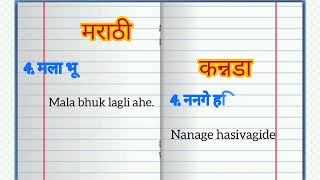 मराठी
4. मला भू
Mala bhuk lagli ahe.
कन्नडा
4. ननगे
Nanage hasivagide